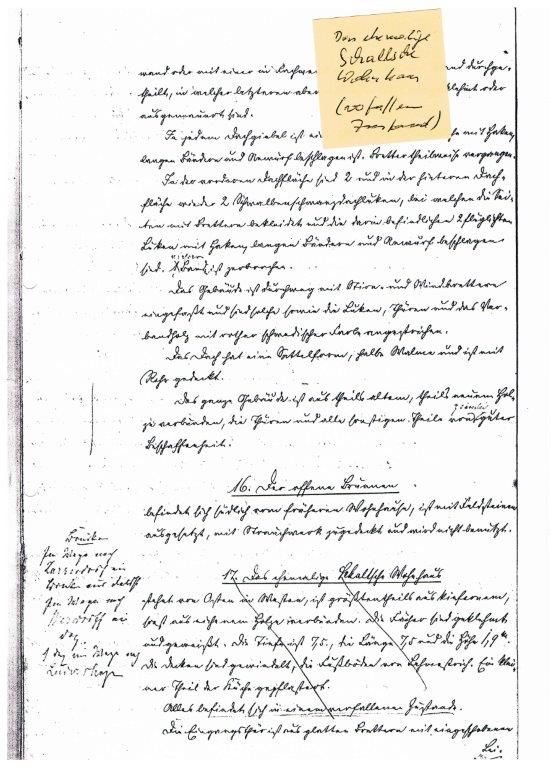 Das ehemalige
Wohnhaus
(verfallen
Zustand)
wand oder mit einer in Fachwerk und durchge-
theilt, in welcher letzteren aber oder
ausgemauert sind.
In jedem Dachgiebel ist mit Haken,
langen Bändern und Anwurf beschlagen ist. Bretter theilweise vergangen.
In der vorderen Dachfläche sind 2 und in der hinteren Dach-
fläche wieder 2 Schwalbenschwanzdachluken, bei welchen die Sei-
ten mit Brettern bekleidet und die darin befindlichen 2 flüglichten
Luken mit Haken, langen Bändern und Anwurf beschlagen
sind. 1 Band ist zerbrochen.
Das Gebäude ist durchweg mit Stirn- und Windbrettern
eingefaßt und sind solche sowie die Luken, Thüren und das Ver-
bandholz mit rother schwedischer Farbe angestrichen.
Das Dach hat eine Sattelform, halbe Walme und ist mit
Rohr gedeckt.
Das ganze Gebäude ist aus theils altem, theils neuem Holz
verbunden, die Thüren und alle sonstigen Theile von ziemlich guter
Beschaffenheit.
16. Der offene Brunnen
befindet sich südlich vom früheren Wohnhause, ist mit Feldsteinen
ausgesetzt, mit Strauchwerk zugedeckt und wird nicht benutzt.
Brücken
Im Wege nach
ein
Im Wege nach
1 im Wege nach
17. Das ehemalige Wohnhaus
stehet von Osten in Westen, ist größtentheils aus kiefernem,
sonst aus eichenem Holze verbunden. Die Fächer sind geklehmt
und geweißt. Die Tiefe ist 7,5, die Länge 7,5 und die Höhe 1,9 m.
Die Decken sind gewindelt, die Fußböden von Lehmestrich. Ein klei-
ner Theil der Küche gepflastert.
Alles befindet sich in einem verfallenen Zustande.
Die Eingangsthür ist aus glatten Brettern mit eingeschobenen
Lei-